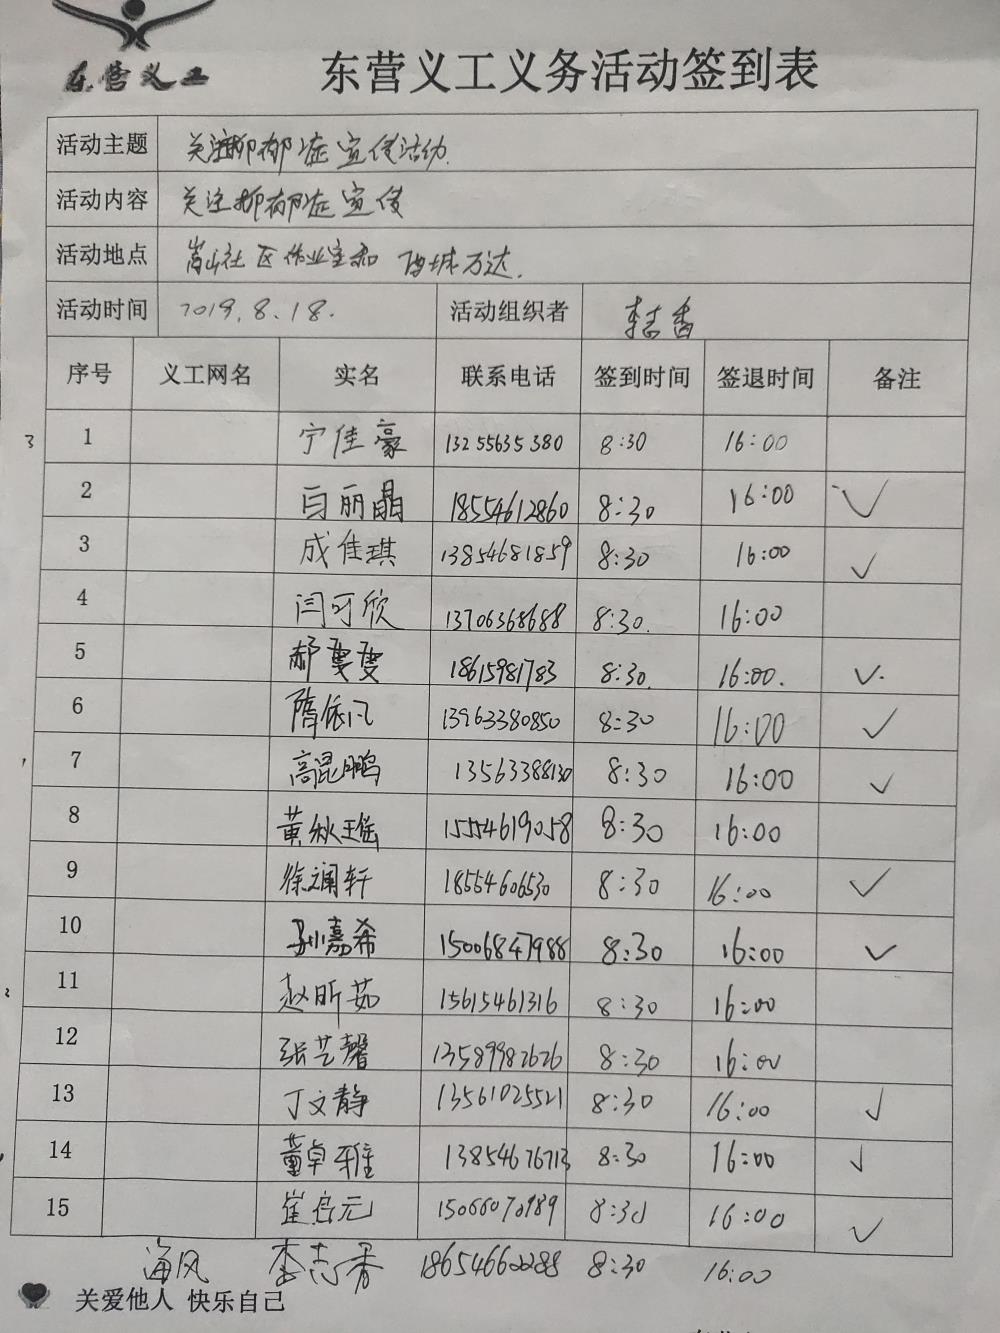 东营义工 东营义工义务活动签到表
活动主题 关注抑郁症宣传活动.
活动内容 关注抑郁症宣传
活动地点 嵩山社区作业室和 西城万达.
活动时间 2019.8.18. 活动组织者 李志香
序号 义工网名 实名 联系电话 签到时间 签退时间 备注
3 1 宁佳豪 13255635380 8:30 16:00
2 白丽晶 18554612860 8:30 16:00 ✓
3 成佳琪 13854681859 8:30 16:00 ✓
4 闫可欣 13706368688 8:30. 16:00
5 郝雯雯 18615981783 8:30. 16:00. ✓.
6 隋依凡 13963380850 8:30 16:00 ✓
7 高昆鹏 13563388130 8:30 16:00 ✓
8 黄秋瑶 15554619058 8:30 16:00
9 徐澜轩 18554606530 8:30 16:00 ✓
10 孙嘉希 15006847988 8:30 16:00 ✓
11 赵昕茹 15615461316 8:30 16:00
12 张艺馨 13589982626 8:30 16:00
13 丁文静 13561025521 8:30 16:00 ✓
14 董卓雅 13854676713 8:30 16:00 ✓
15 崔启元 15066070989 8:30 16:00 ✓
海风 李志香 18654660288 8:30 16:00
关爱他人 快乐自己